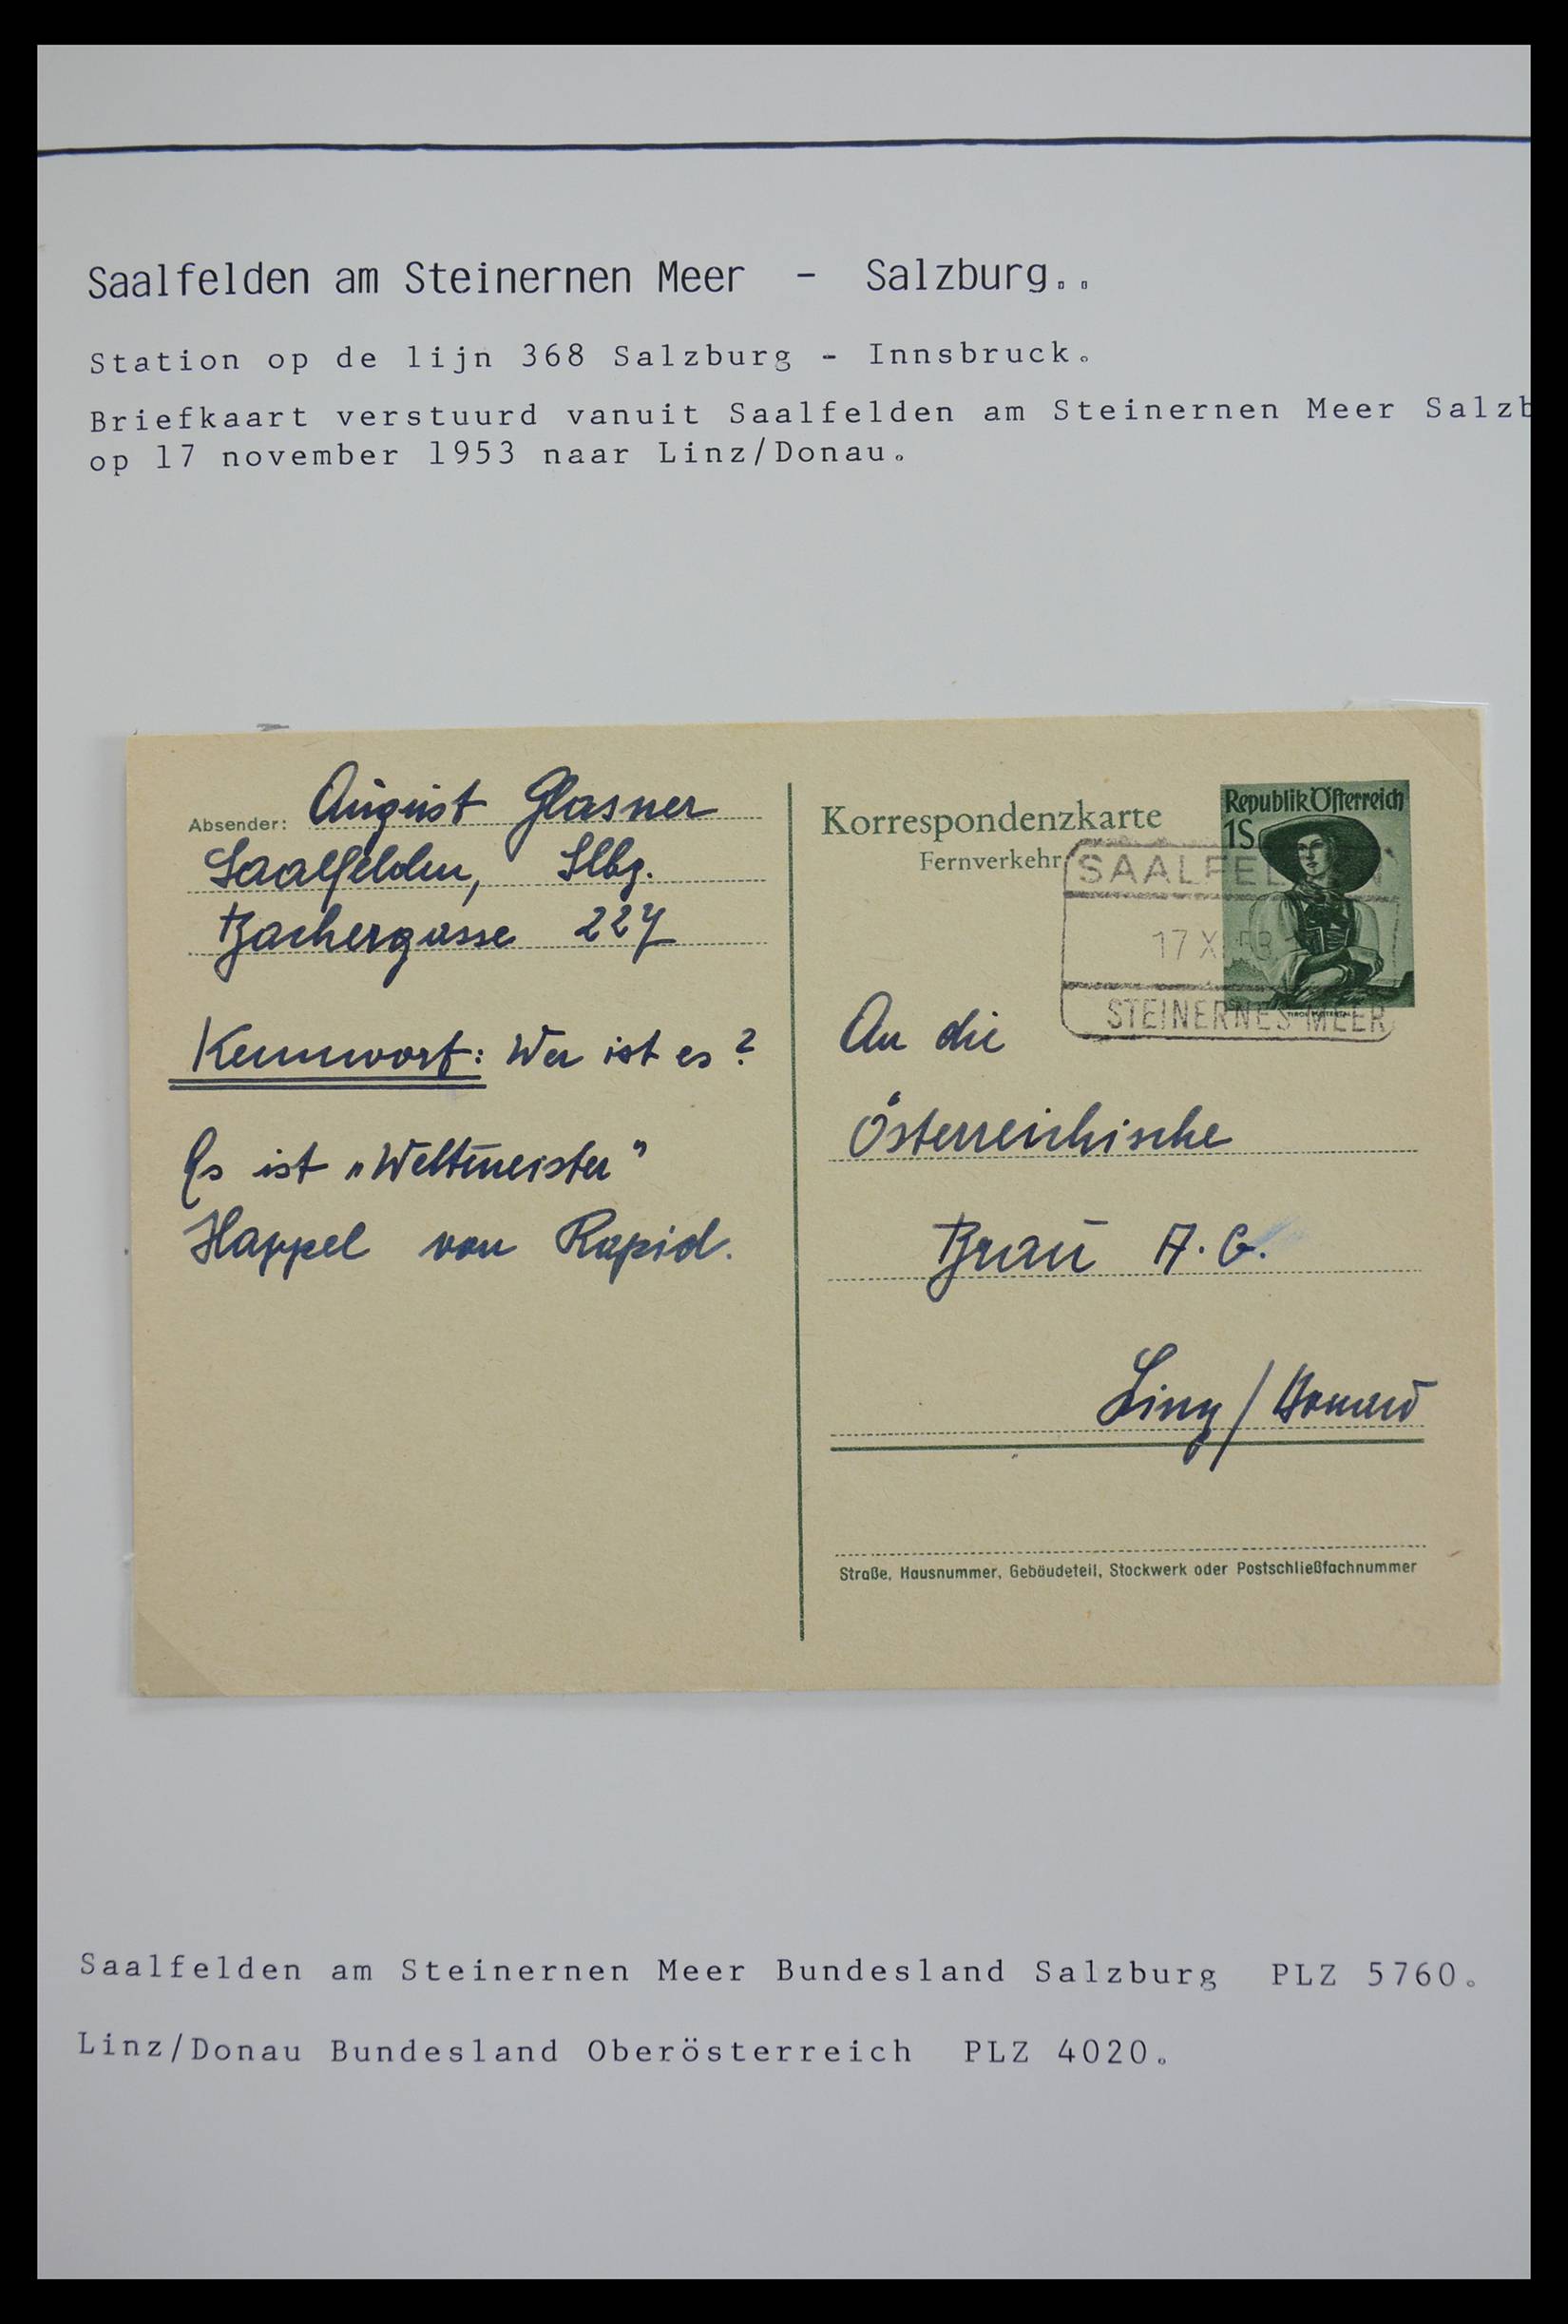 Saalfelden am Steinernen Meer - Salzburg..
Station op de lijn 368 Salzburg - Innsbruck.
Briefkaart verstuurd vanuit Saalfelden am Steinernen Meer Salzb
op 17 november 1953 naar Linz/Donau.
Absender: August Glasner
Saalfelden, Slbg.
Bachergasse 227
Kennwort: Wer ist es?
Es ist „Weltmeister"
Happel von Rapid.
Korrespondenzkarte
Fernverkehr
Republik Österreich
1S
SAALFELDEN
17 XI 53
STEINERNES MEER
An die
Österreichische
Brau A.G.
Linz/Donau
Straße, Hausnummer, Gebäudeteil, Stockwerk oder Postschließfachnummer
Saalfelden am Steinernen Meer Bundesland Salzburg PLZ 5760.
Linz/Donau Bundesland Oberösterreich PLZ 4020.